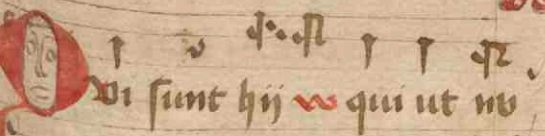 Qui sunt hij qui ut nu